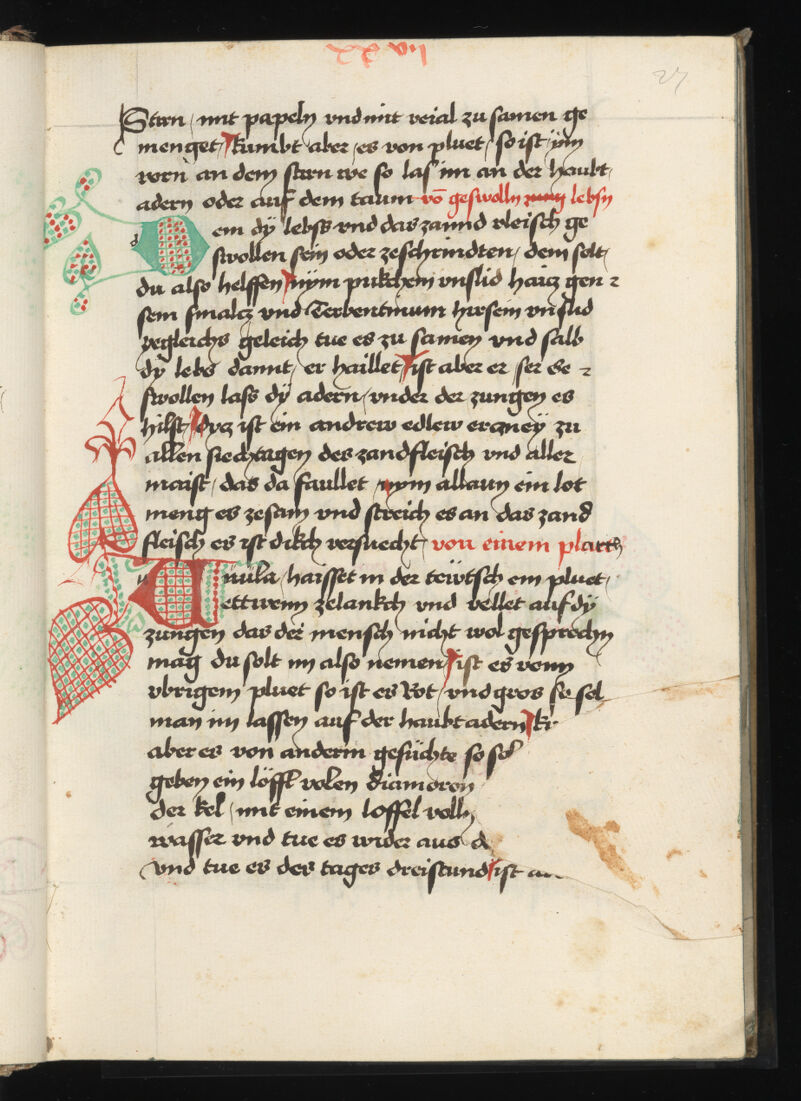 27
Stirn mit papeln vnd mit veial zu samen ge
menget kumbt aber es von pluet so ist im
vorn an dem stirn we so las im an der haubt
adern oder auf dem taum võ geswolln lebsn
em dÿ lebss vnd das zannd vleisch ge
swollen sein oder zeschrindten dem solt
du also helffen nÿm vnslid harcz gen
sein smalcz vnd Terbentinum hirsein vnslid
yegleichs geleich tue es zu samen vnd salb
dÿ lebs damit er haillet ist aber er ser ge
swollen lass dÿ adern vnder der zungen es
hilft ist ein andrew edlew erczneÿ zu
allen siechtagen des zandfleisch vnd aller
maist das da faullet nym allaun ein lot
meng es zesam vnd streich es an das zand
fleisch es ist dikch versuecht von einem
Unula haisset in der tewtsch ein pluet
ettwenn zelankch vnd vellet auf dÿ
zungen das der mensch nicht wol gesprechn
mag du solt im also nemen ist es vonn
vbrigem pluet so ist es Rot vnd gros so sol
man im lassen auf der haubtadern
aber es von anderm gesüchte so sol
geben ein löffl volen diamoron
der kel mit einem loffel volln
wasser vnd tue es wider aus
vnd tue es des tages dreistund ist